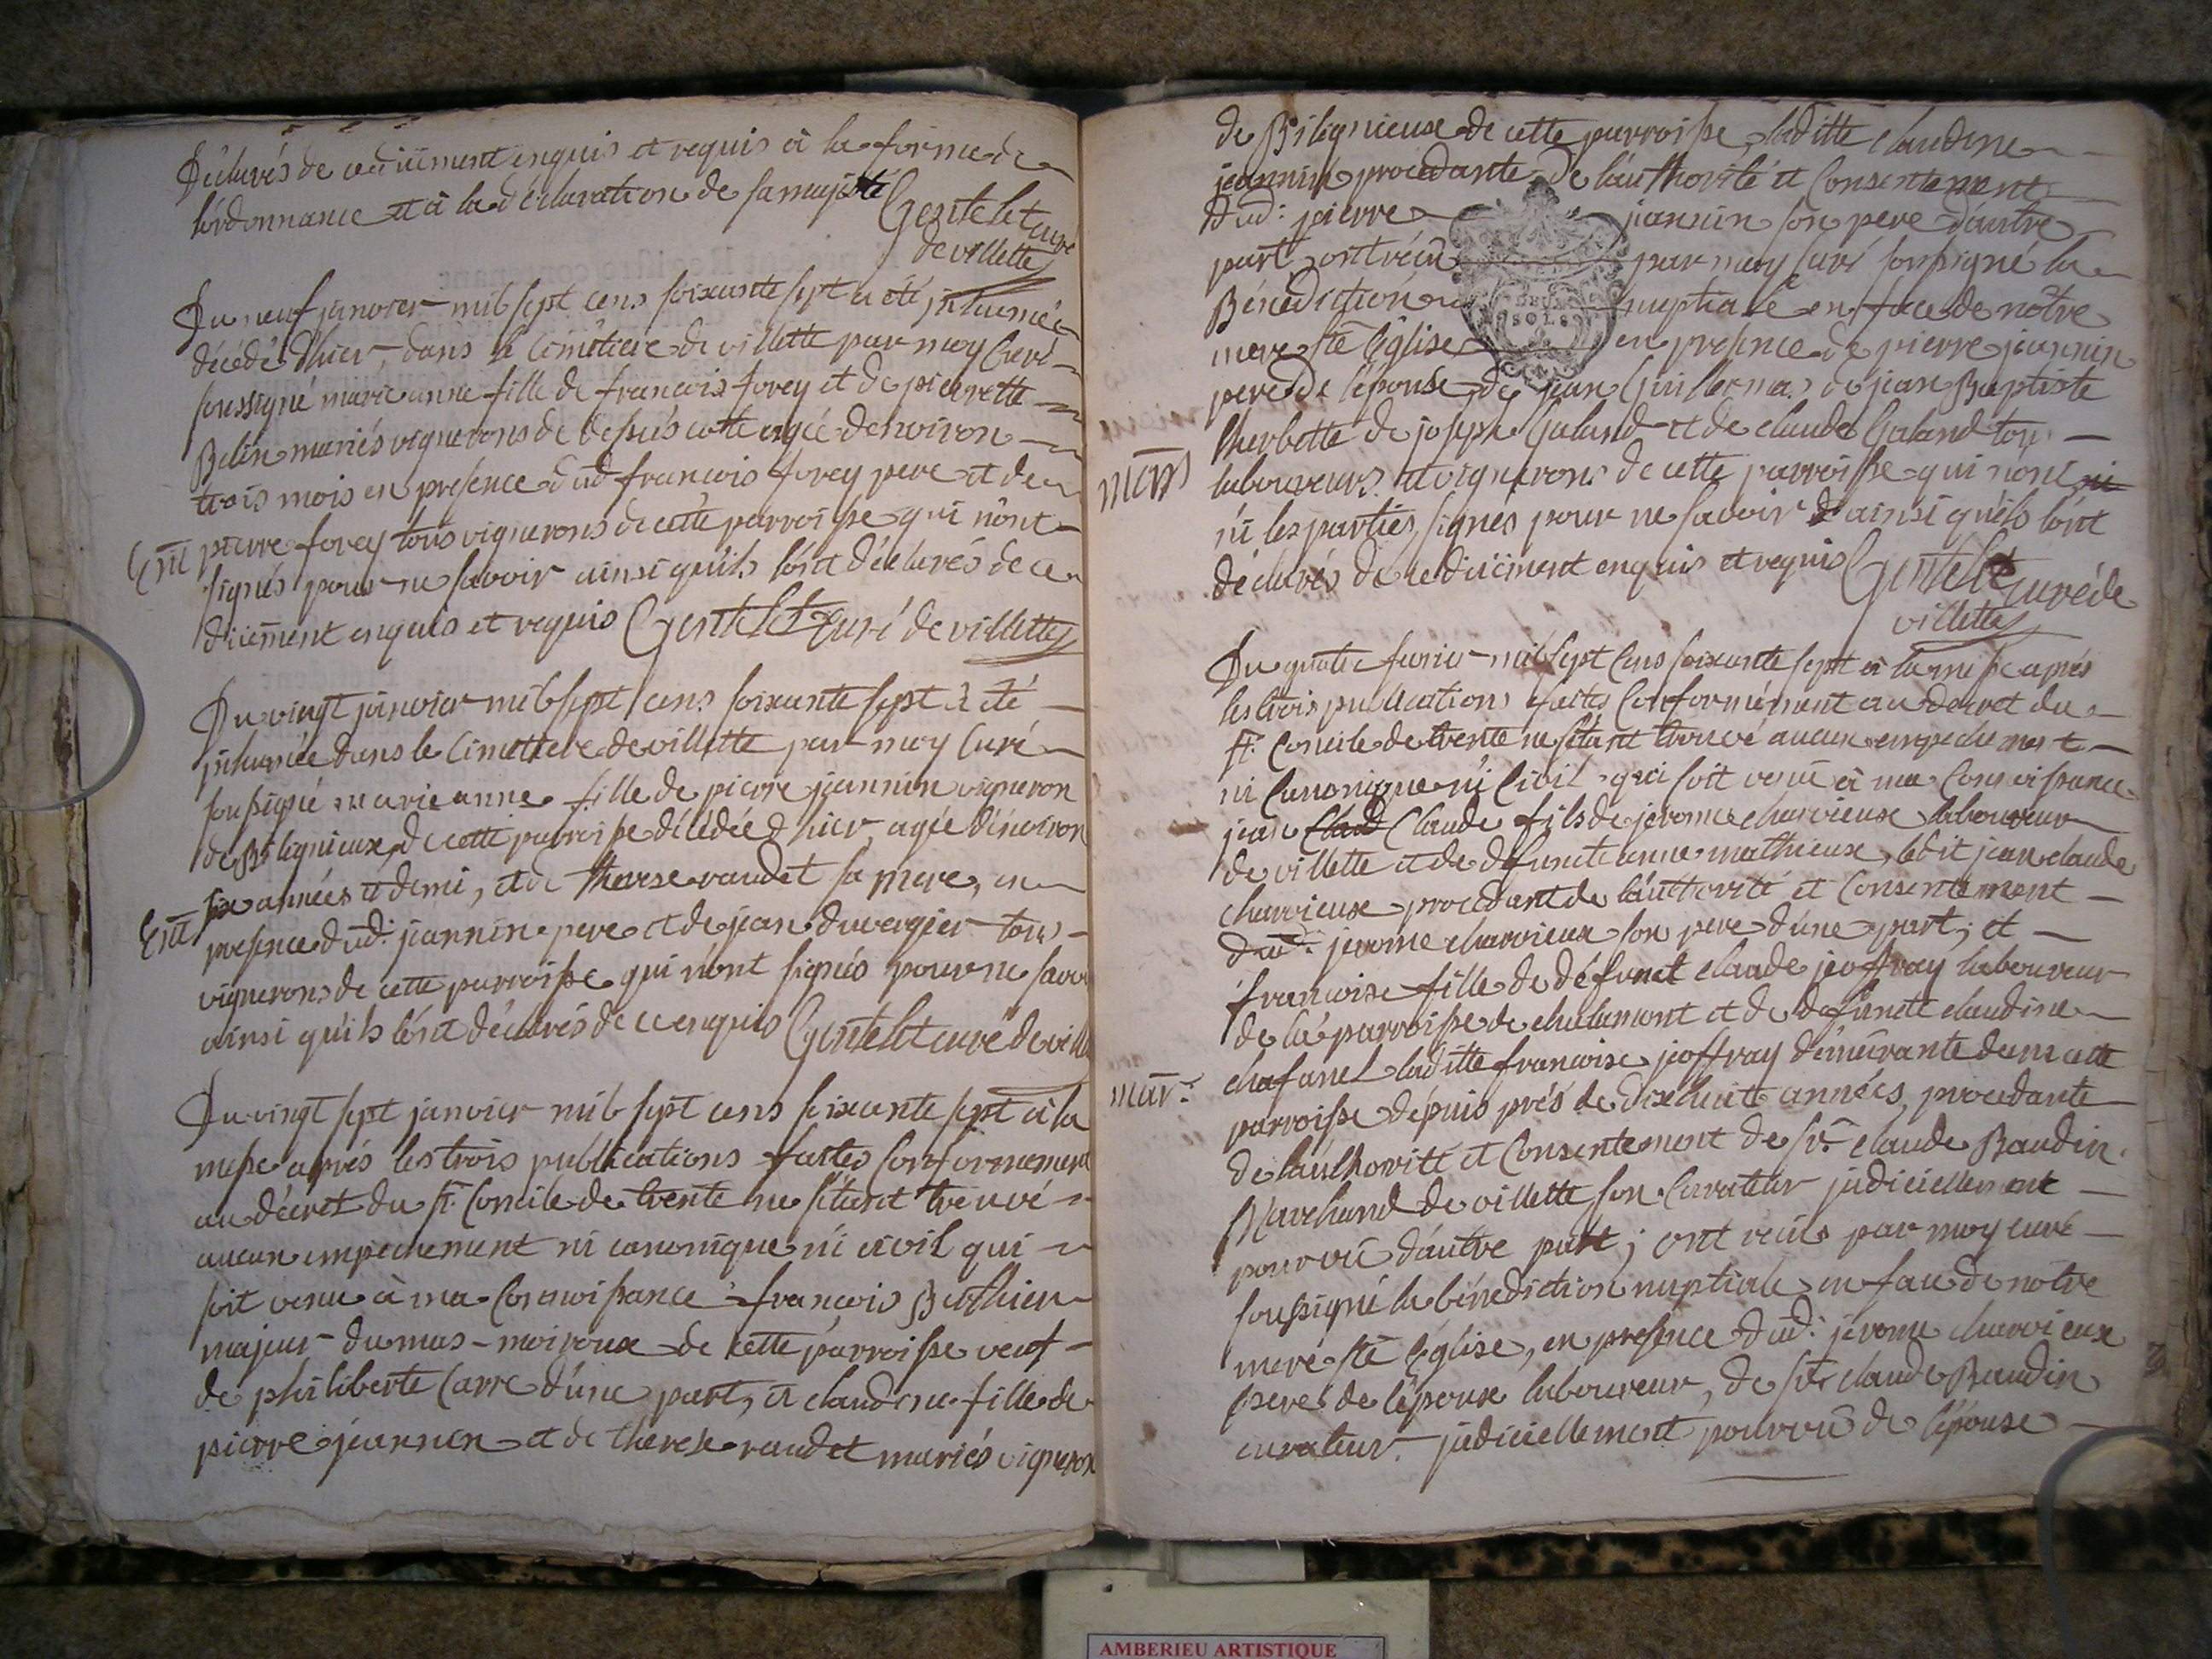 Déclarés de ce düement enquis et requis à la forme de
l'ordonnance et à la déclaration de sa majesté Gentelet curé
de villette
Du neuf janvier mil sept cens soixante sept a été inhumée
décédé d'hier, dans le cimetiere de villette par moy curé
soussigné marie anne fille de francois forey et de pierrette
Belin mariés vignerons de cette agée denviron
trois mois en presence dud francois forey pere et de
Ent pierre forey tous vignerons de cette parroisse qui n'ont
signés pour ne savoir ainsi qu'ils l'ont déclarés de ce
düement enquis et requis Gentelet curé de villette
Du vingt janvier mil sept cens soixante sept à été
inhumée dans le cimettiere de villette par moy curé
soussigné marie anne fille de pierre jeannin vigneron
de Bilignieux de cette parroisse décédée d'hier agée dénviron
six années et demi, et de therese raudet sa mere, en
Ent presence dud: jeannin pere et de jean duvergier tous
vignerons de cette parroisse qui n'ont signés pour ne savoi
ainsi qu'ils l'ont déclarés de ce enquis Gentelet curé de vill
Du vingt sept janvier mil sept cens soixante sept à la
messe aprés les trois publications faites conformement
au décret du st. Concile de trente ne s'étant treuvé
aucun empechement ni canonique ni civil qui
soit venu à ma connoissance francois Buthier
majeur du mas-moiroux de cette parroisse veuf
de philiberte Carre d'une part, et claudine fille de
pierre jeannin et de therese raudet mariés vigneron
de Bilignieux de cette parroisse, laditte claudine
jeannin procedante de l'authorité et consentement
dud: pierre jannin son pere d'autre
part ont reçu par moy curé soussigné la
Bénédiction nuptiale en face de nôtre
SOLS
mere ste Eglise en presence de pierre jeannin
pere de l'épouse de jean Guillermas de jean Baptiste
therbette de joseph Galand et de claude Galand tous
mar laboureurs et vignerons de cette parroisse qui n'ont ni
ni les parties signés pour ne savoir d ainsi qu'ils l'ont
déclarés de ce düement enquis et requis Gentelet curé de
villette
Du quatre fevrier mil sept cens soixante sept à la messe aprés
les trois publications faites conformément au decret du
st. Concile de trente ne s'étant trouvé aucun empechement
ni Canonique ni Civil qui soit venü à ma connoissance
jean Claud Claude fils de jerome charvieux laboureur
de villette et de defuncte anne mathieux, ledit jean claude
charvieux procedant de l'authorité et consentement
dud: jerome charvieux son pere d'une part; et
francoise fille de défunct claude jeoffray laboureur
de la parroisse de chalamont et de defuncte claudine
chafanel laditte francoise jeoffray démeurante dans cette
mar: parroisse dépuis prés de dixhuit années, procedante
de l'authorité et Consentement de sr. claude Baudin
Marchand de villette son Curateur judiciellement
pourvü d'autre part; ont reçus par moy curé
soussigné la bénédiction nuptiale en face de notre
mere ste Eglise, en presence dud: jérome charvieux
pere de l'époux laboureur, de sr. claude Baudin
curateur judiciellement pourvû de l'épouse
AMBERIEU ARTISTIQUE